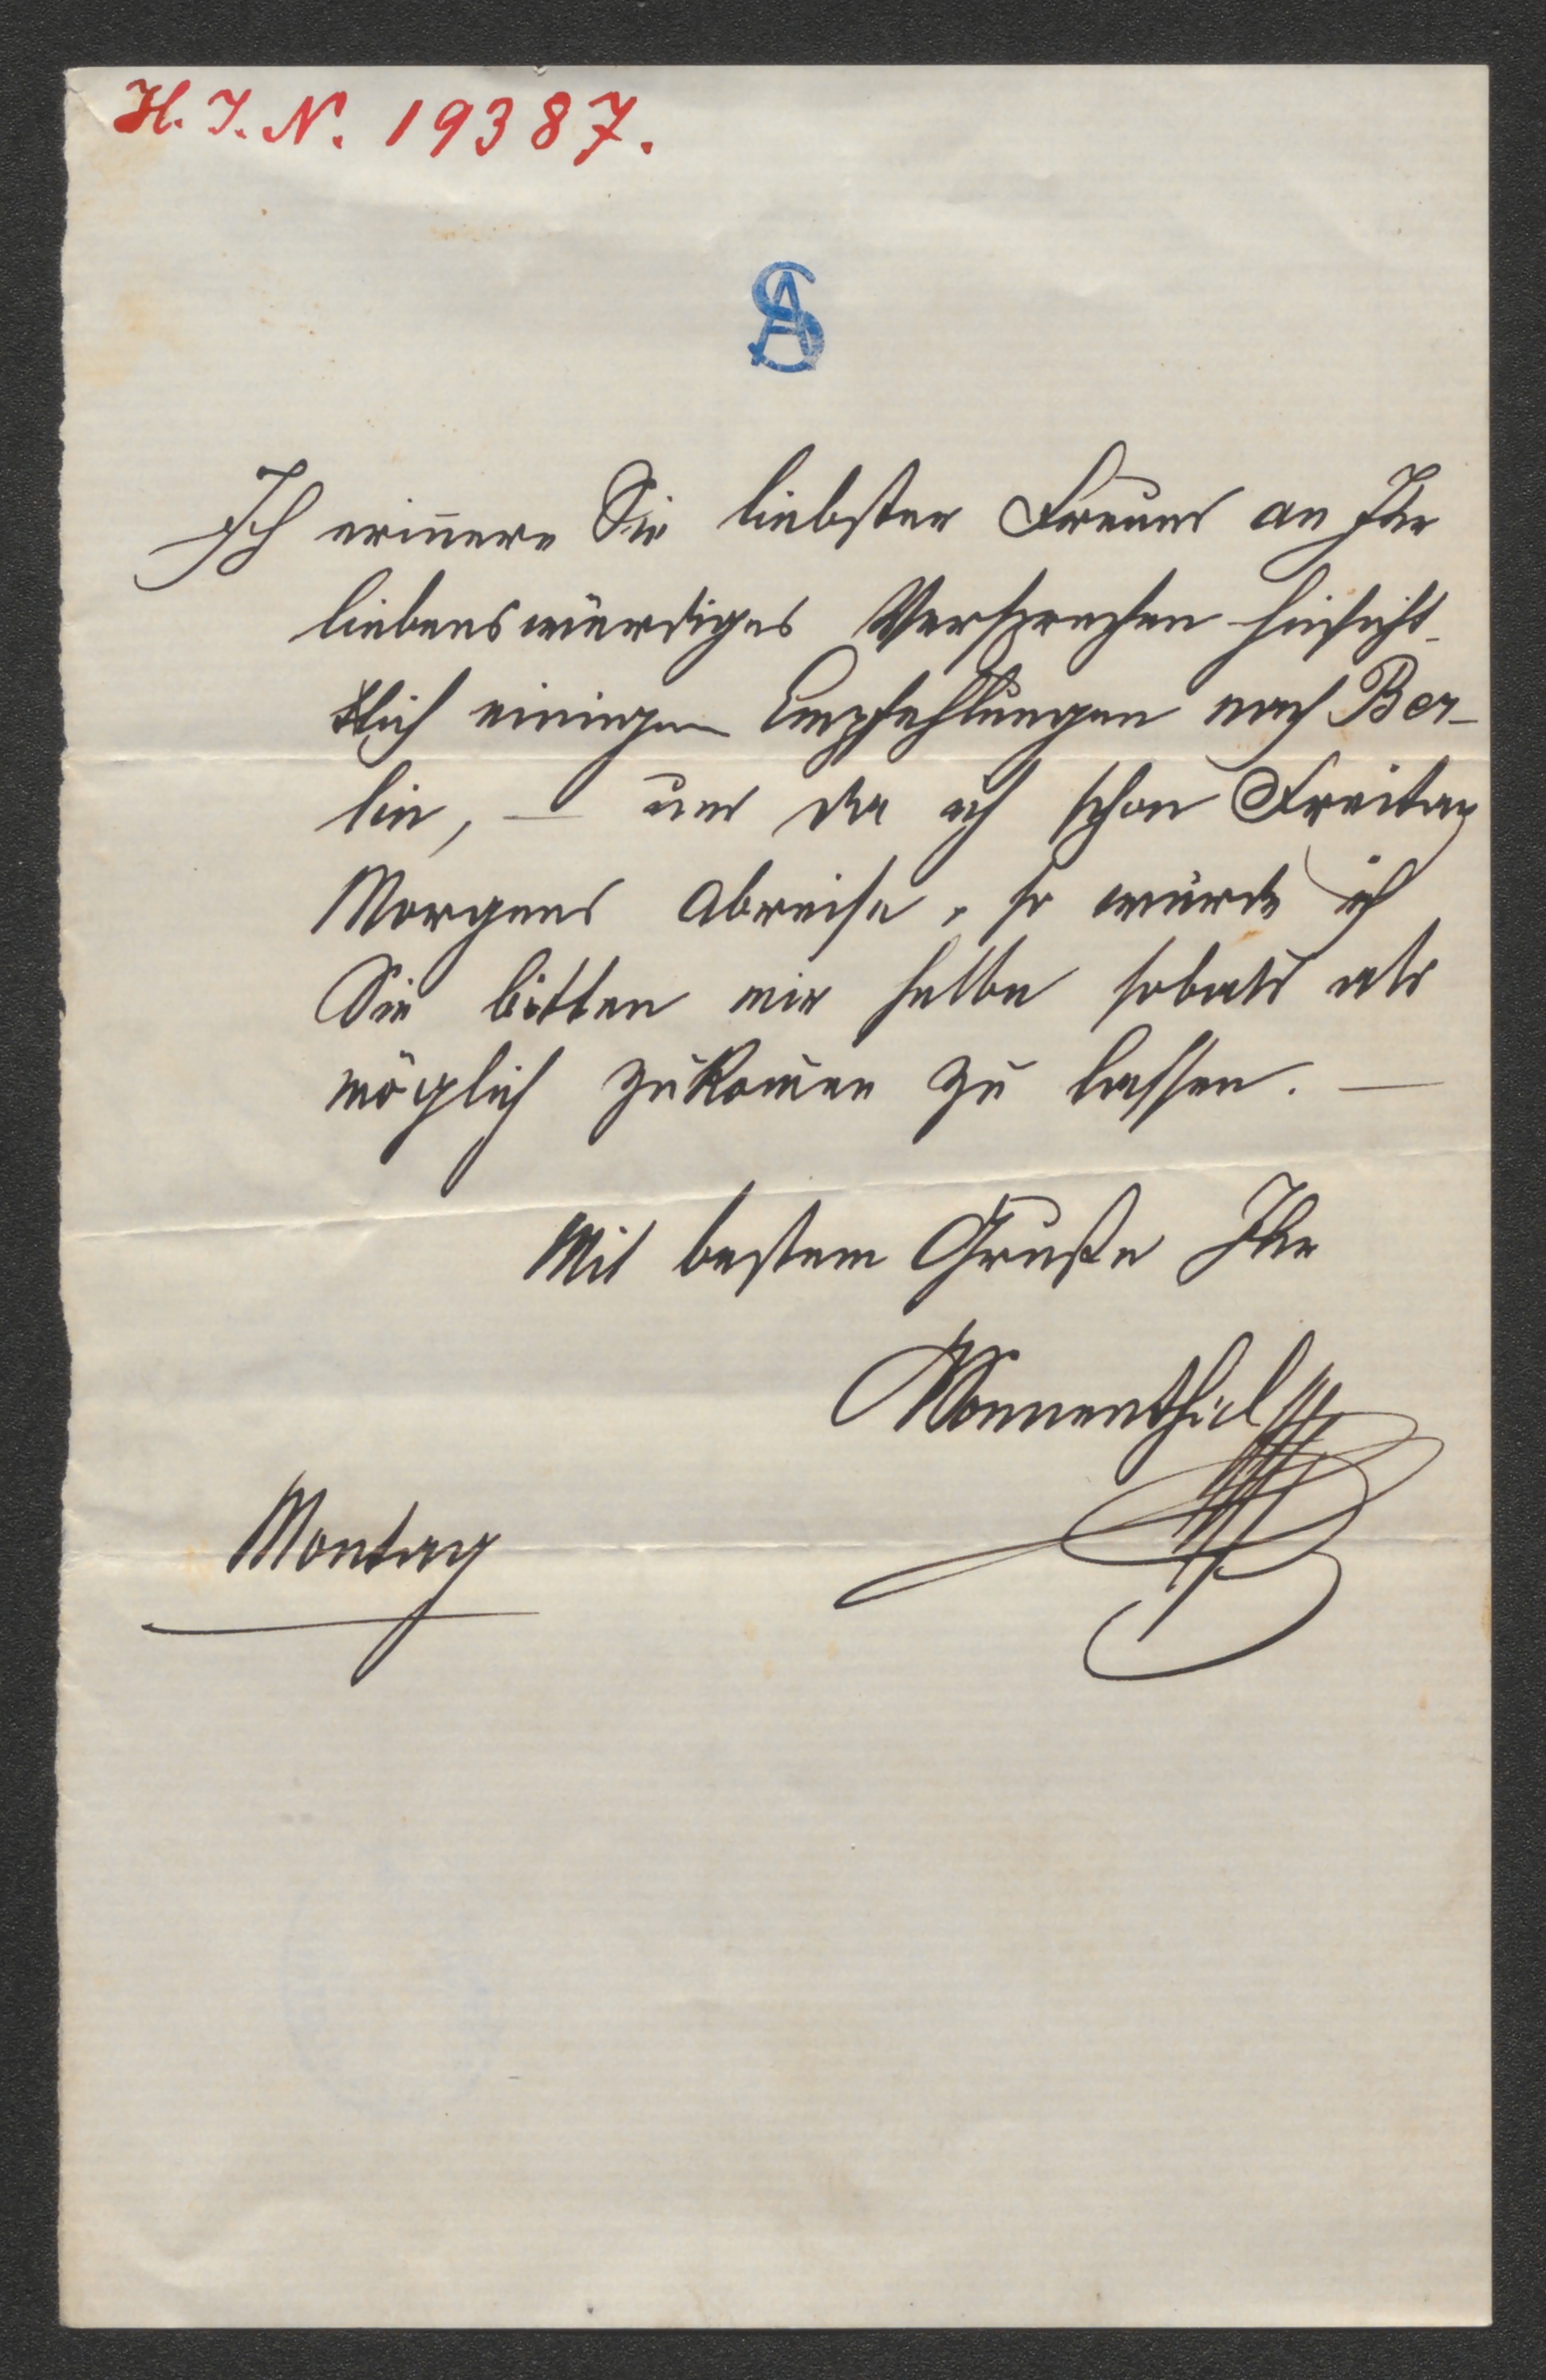 H. I. N. 19387.
AS
Ich erin̄ere Sie liebster Freund an Ihr
liebenswürdiges Versprechen hinsicht-
lich einigen Empfehlungen nach Ber-
lin, — und da ich schon Freitag
Morgens abreise, so würde ich
Sie bitten mir selbe sobald als
möglich zukom̄en zu lassen. —
Mit bestem Gruße Ihr
Sonnenthal
Montag